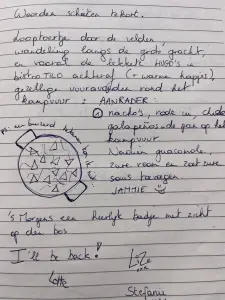 Woorden schieten tekort.
Looptoertje door de velden,
wandeling langs de grote gracht,
en vooral de lekkere HUGO's in
bistro TILO achteraf (+ warme hapjes),
gezellige vuuravonden rond het
kampvuur : AANRADER:
nacho's, rode ui,
jalapeños de pan op het
kampvuur
Nadien guacomole,
zure room en zoetzure
saus toevoegen
JAMMIE
's Morgens een heerlijk badje met zicht
op den bos
I'll be back!
Lotte
Lize
xxx
Stefanie